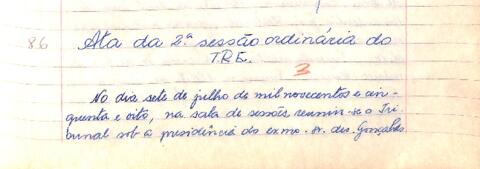 86
Ata da 2.ª sessão ordinária do
T.R.E.
3
No dia sete de julho de mil novecentos e cin-
quenta e oito, na sala de sessões, reuniu-se o Tri-
bunal sob a presidência do exmo. sr. des. Gonçalves